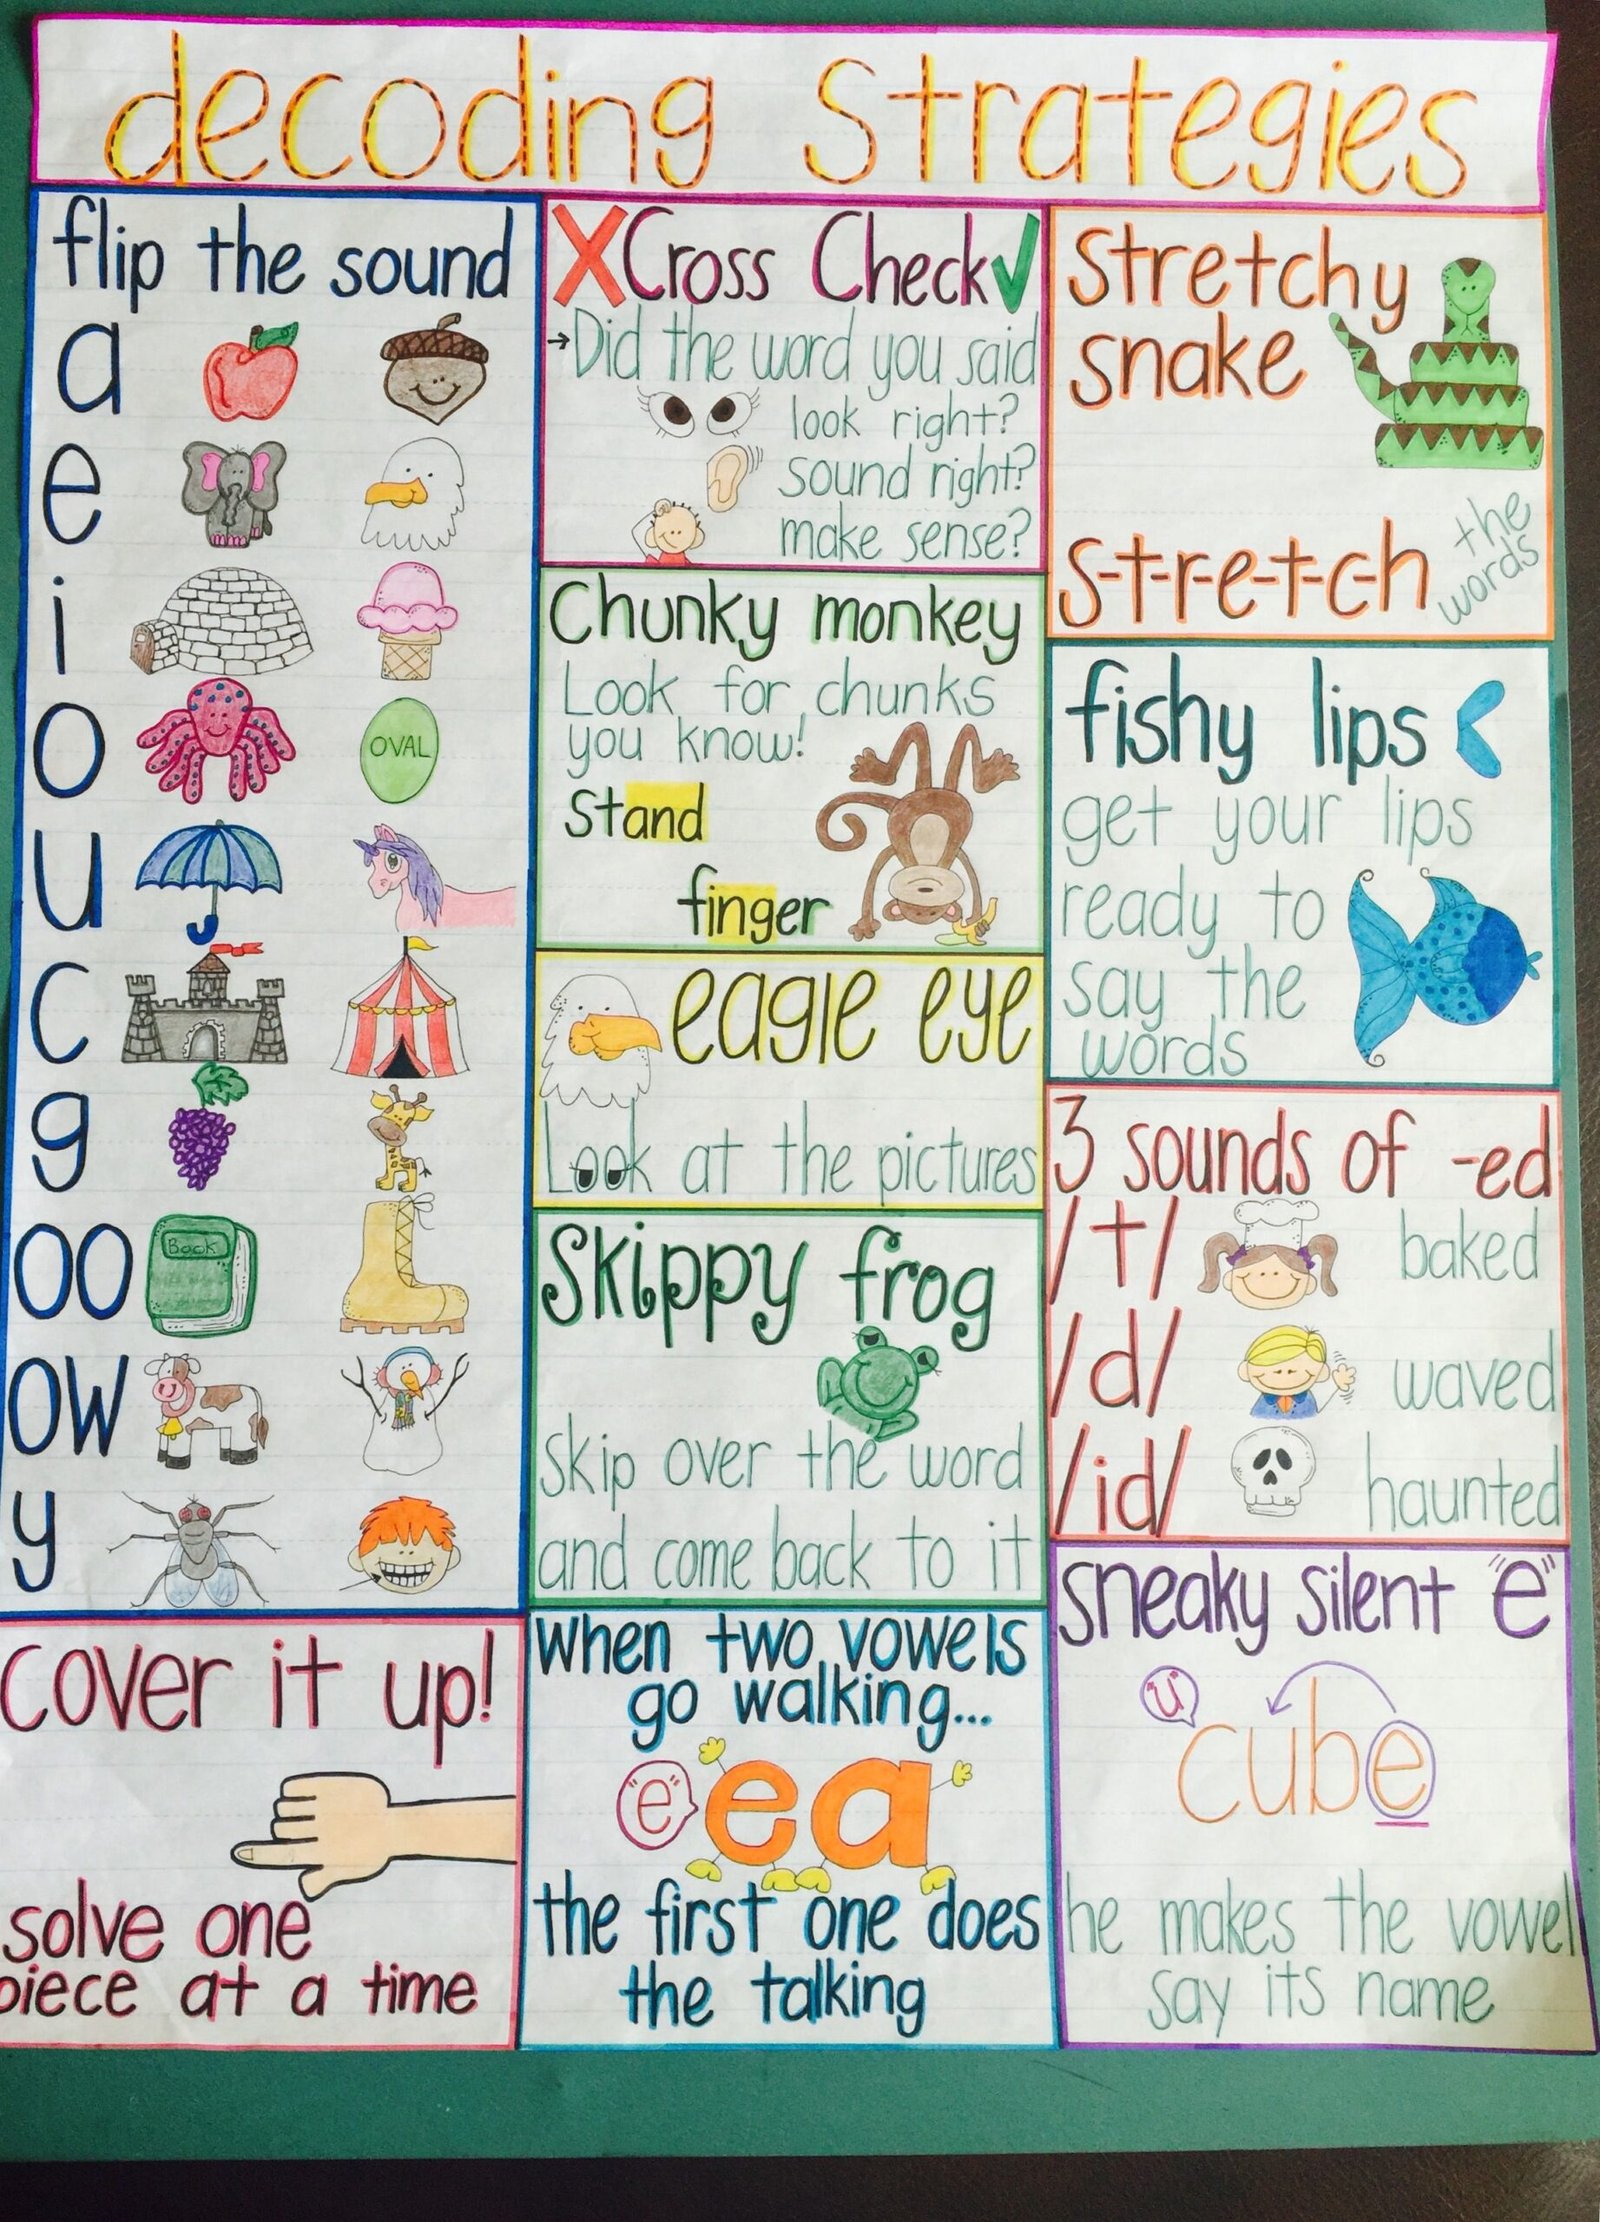 decoding Strategies
flip the sound
a
e
i
o
OVAL
u
c
g
oo
Book
ow
y
cover it up!
solve one
piece at a time
X Cross Check ✓
→Did the word you said
look right?
sound right?
make sense?
Chunky monkey
Look for chunks
you know!
Stand
finger
eagle eye
Look at the pictures
Skippy frog
skip over the word
and come back to it
when two vowels
go walking...
"e" ea
the first one does
the talking
Stretchy
snake
s-t-r-e-t-c-h the
words
fishy lips
get your lips
ready to
say the
words
3 sounds of -ed
/t/ baked
/d/ waved
/id/ haunted
sneaky silent "e"
"u"
cube
he makes the vowel
say its name